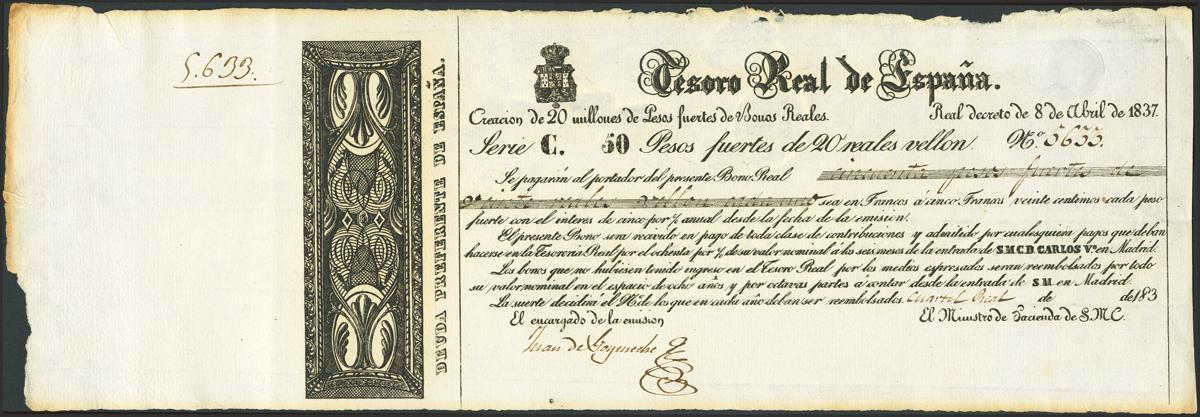 5.633.
DEUDA PREFERENTE DE ESPAÑA.
Tesoro Real de España.
Creacion de 20 millones de Pesos fuertes de Bonos Reales. Real decreto de 8 de Abril de 1837.
Serie C. 50 Pesos fuertes de 20 reales vellon. Nº 5633.
Se pagarán al portador del presente Bono Real cincuenta pesos fuertes de
veinte reales vellon cada uno ó sea en Francos á cinco Francos veinte centimos cada peso
fuerte con el interes de cinco por % anual desde la fecha de la emisión.
El presente Bono sera recivido en pago de toda clase de contribuciones y admitido por cualesquiera pagos que deban
hacerse en la Tesoreria Real por el ochenta por % de su valor nominal á los seis meses de la entrada de S.M.C.D. CARLOS Vº en Madrid.
Los bonos que no hubiesen tenido ingreso en el Tesoro Real por los medios espresados seran reembolsados por todo
su valor nominal en el espacio de ocho años y por octavas partes a contar desde la entrada de S M en Madrid.
La suerte decidirá el Nº de los que en cada año deban ser reembolsados. Cuartel Real de de 183
El encargado de la emision El Ministro de Hacienda de S.M.C.
Juan de Goyeneche